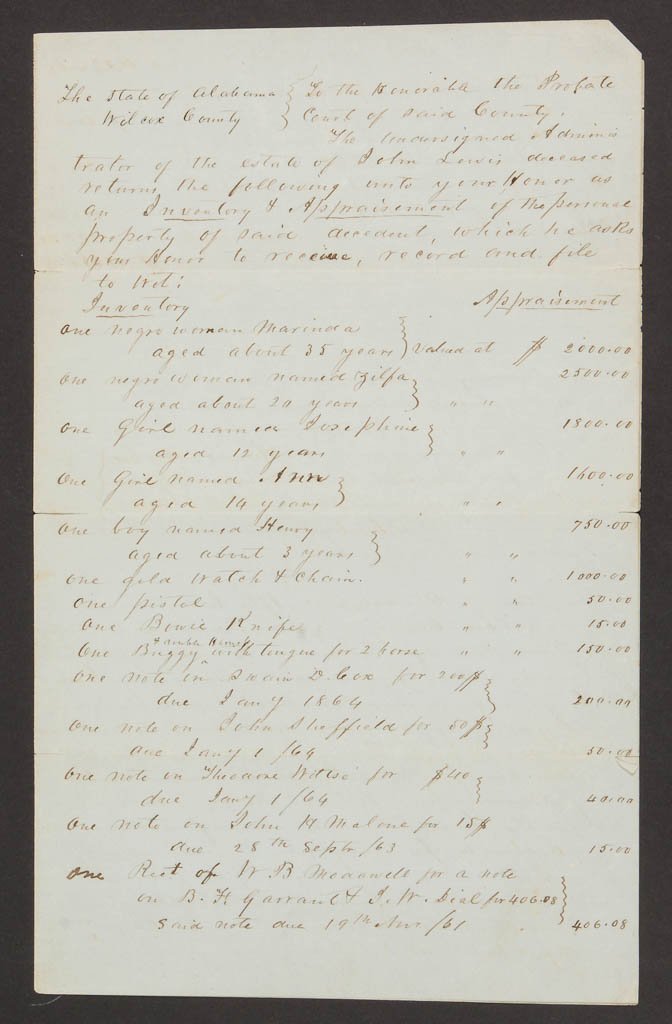 The State of Alabama } To the Honorable the Probate
Wilcox County } Court of said County.
The undersigned Adminis
trator of the estate of John Lewis deceased
returns the following unto your Honor as
an Inventory & Appraisement of the personal
property of said decedent, which he asks
your Honor to receive, record and file
to wit:
Inventory Appraisement
One negro woman Marinda
aged about 35 years } valued at $ 2000.00
One negro woman named Zilfa 2500.00
aged about 20 years } " "
One Girl named Josephine 1800.00
aged 12 years } " "
One Girl named Ann 1600.00
aged 14 years } " "
One boy named Henry 750.00
aged about 3 years } " "
One gold Watch & Chain. " " 1000.00
One pistol " " 50.00
One Bowie Knife " " 15.00
One Buggy with tongue for 2 horse " " 150.00
One note on Swain D. Cox for 200$
due Jany 1864 } 200.00
One note on John Sheffield for 50$
due Jany 1/64 } 50.00
One note on Theodore for $40
due Jany 1/64 } 40.00
One note on John H Malone for 15$
due 28th Septr/63 15.00
One Rect of W B for a note
on B. F. Garrant & J. W. Dial for 406.08
Said note due 19th Nov /61 } 406.08